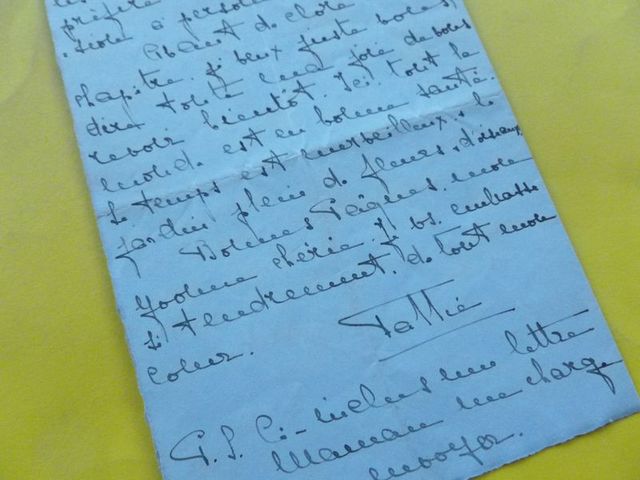 préfère
à person
Avant de clore
chapitre je veux juste vous
dire toute ma joie de vous
revoir bientôt. Ici tout le
monde est en bonne santé.
Le temps est merveilleux, le
jardin plein de fleurs, d'oiseaux
Bonnes Pâques, mon
chérie, je vs. embrasse
si tendrement, de tout mon
coeur.
P.S. Ci-inclus une lettre
Maman me charge
envoyer.